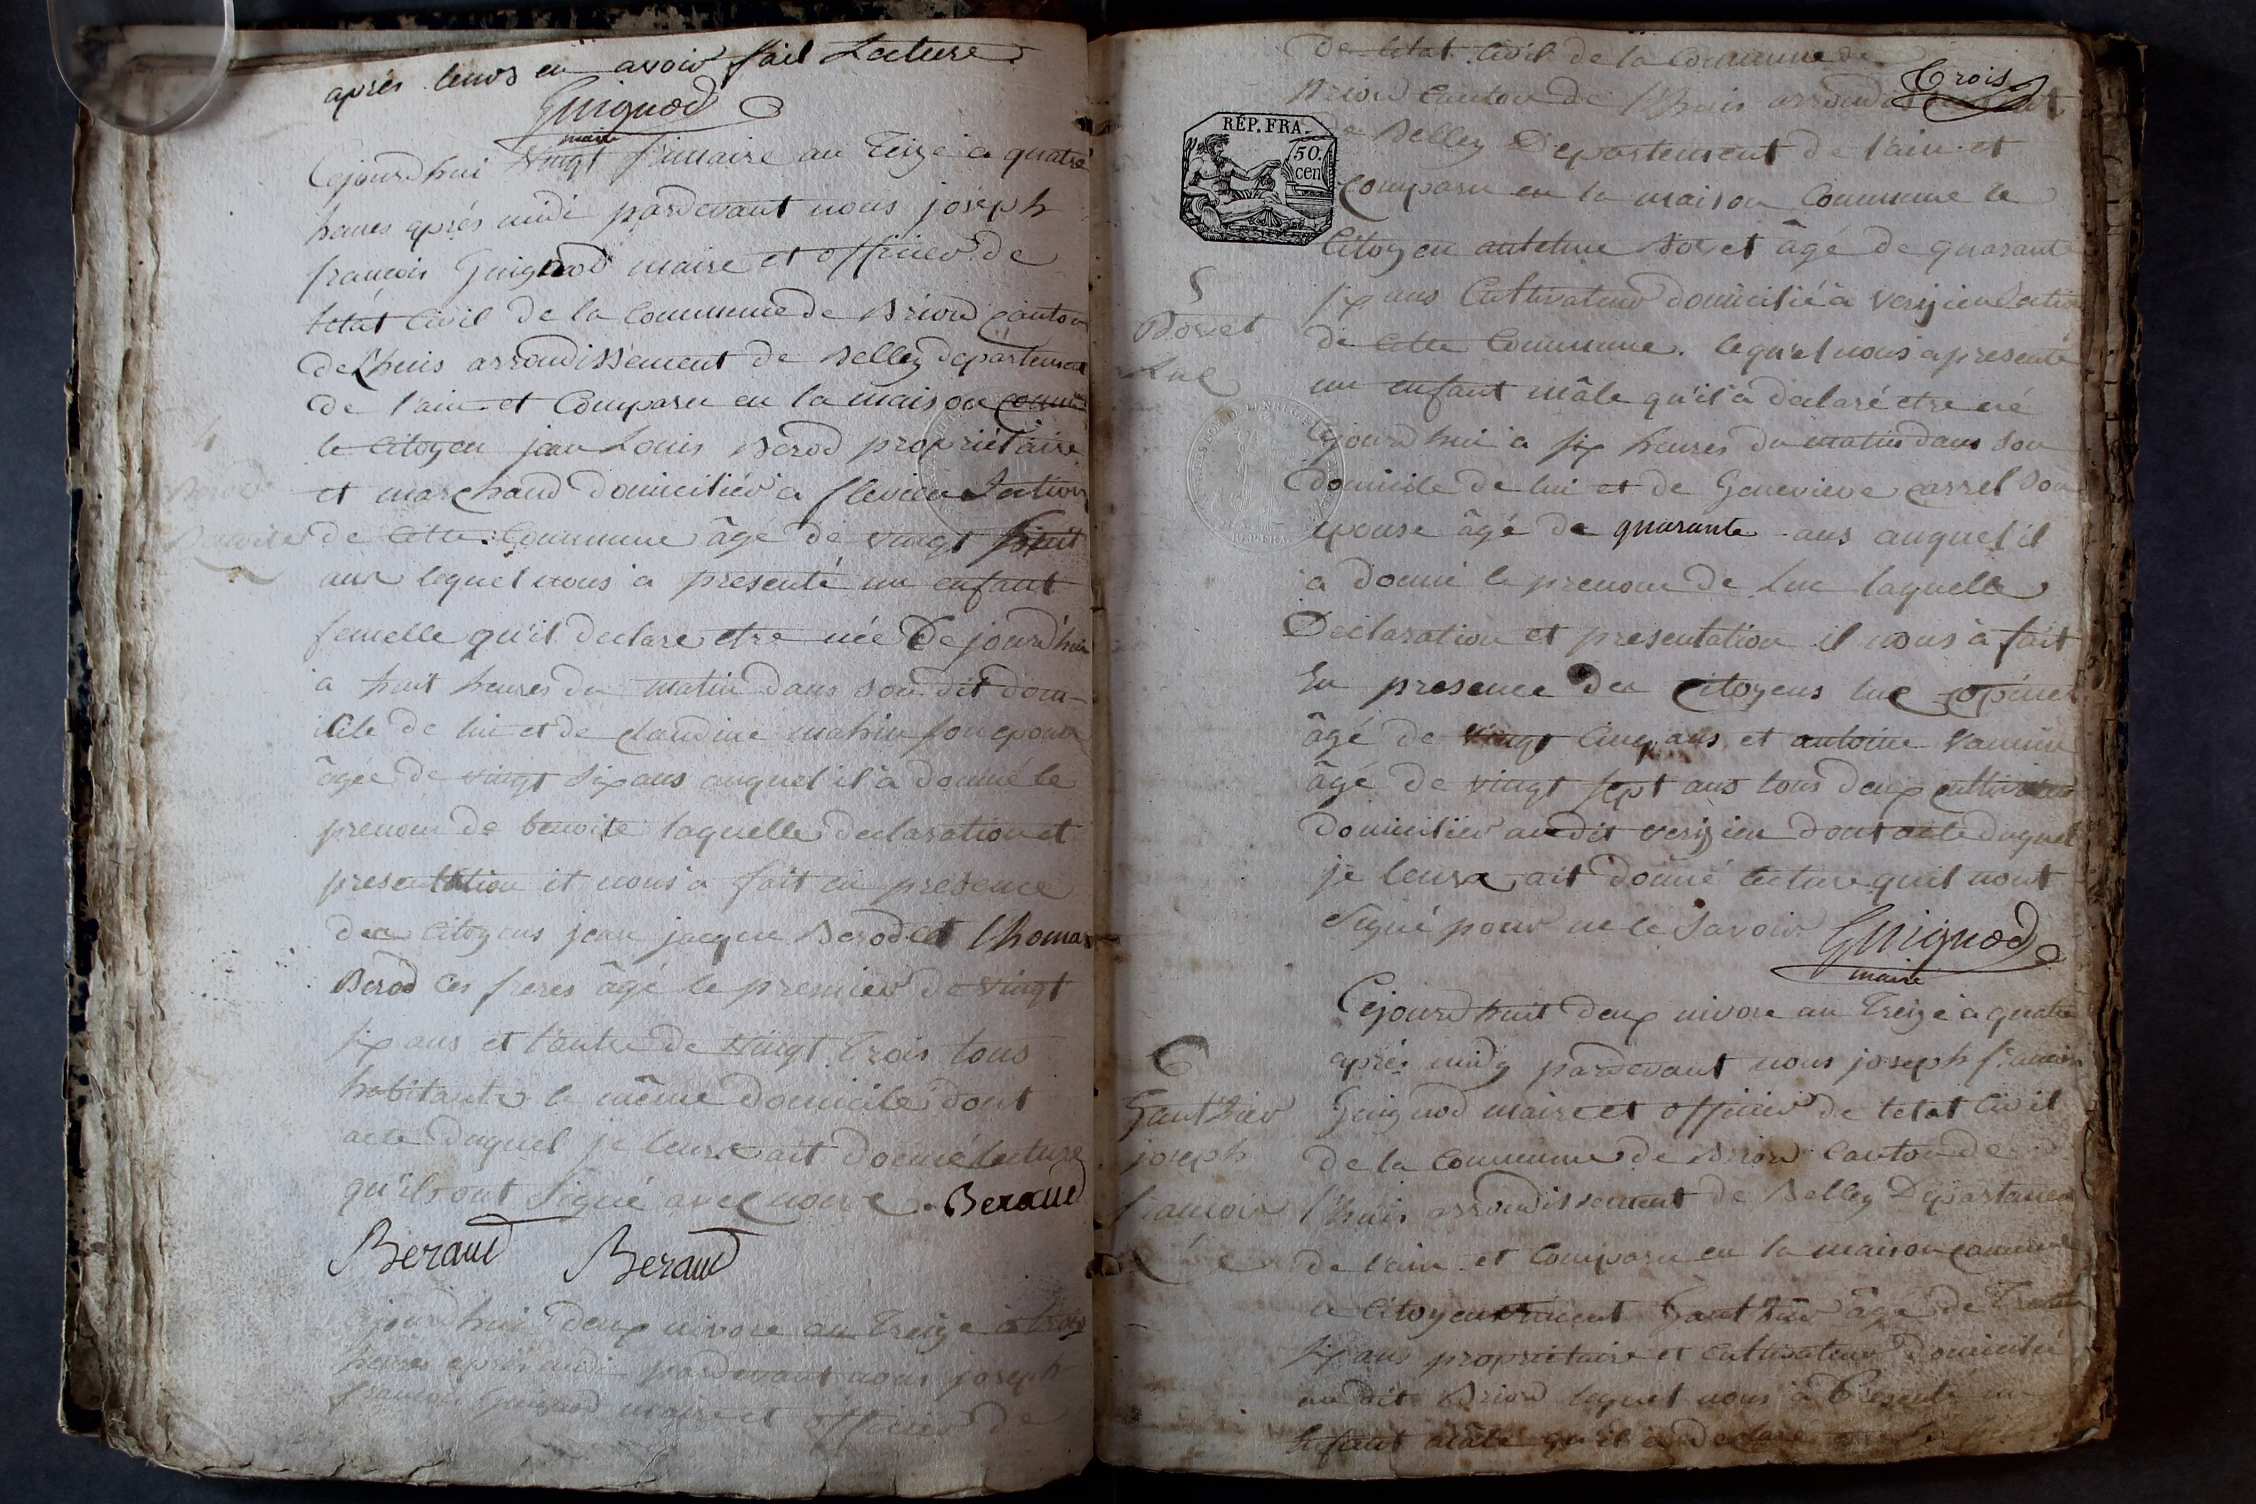 après leurs en avoir fait Lecture
Guignod
maire
Cejourdhui vingt frimaire an Treize a quatre
heures après midi pardevant nous joseph
françois Guignod maire et officier de
létat Civil de la Commune de Briord canton
de Lhuis arrondissement de Belley departement
de l'ain et Comparu en la maison Commune
4
le Citoyen jean Louis Berod propriétaire
Berod
et marchand domicilier a flevieu Section
Benoite
de Cette Commune âgé de vingt huit
ans lequel nous a presenté un enfant
femelle qu'il declare etre née De jourd'hui
a huit heures du matin dans son dit dom-
icile de lui et de claudine mahin son epouse
âgée de vingt Six ans auquel il à donné le
prenom de benoite laquelle declaration et
presentation il nous a fait en presence
des Citoyens jean jacque Berod et thomas
Berod Ces freres âgé le premier de vingt
six ans et l'autre de vingt Trois tous
habitants le même domicile dont
acte duquel je leurs ait donné lecture
qu'ils ont Signé avec nous Beraud
Beraud Beraud
Cejourdhui deux nivose an Treize à trois
heures après midi pardevant nous joseph
françois Guignod maire et officier de
Trois
de létat Civil de la Commune de
Briord Canton de l'huis arrondissement
RÉP. FRA.
50. cen
de Belley Departement de l'ain et
Comparu en la maison Commune le
Citoyen antelme Bovet âgé de quarante
5
six ans Cultivateur domicilié à verizieu Section
Bovet
de Cette Commune. lequel nous a presenté
Luc
un enfant mâle qu'il a declaré etre né
Cejourdhui a six heures du matin dans son
domicile de lui et de Genevieve carrel Son
epouse âgé de quarante ans auquel il
a donné le prenom de Luc laquelle
Declaration et presentation il nous à fait
En presence des Citoyens luc
âgé de vingt Cinq ans et antoine
âgé de vingt sept ans tous deux cultivateurs
domicilier audit verizieu dont acte duquel
je leurs ait donné lecture quil nont
Signé pour ne le Savoir Guignod
maire
Cejourdhuit deux nivose an Treize a quatre
6
après midy pardevant nous joseph francois
Gauthier
Guignod maire et officier de létat Civil
joseph
de la Commune de Briord Canton de
françois
l'huis arrondissement de Belley Departement
de l'ain et Comparu en la maison commune
le Citoyen vincent Gauthier âgé de Trente
six ans propriétaire et Cultivateur domicilié
au dit Briord lequel nous à Presenté un
Enfant mâle qu'il a declaré